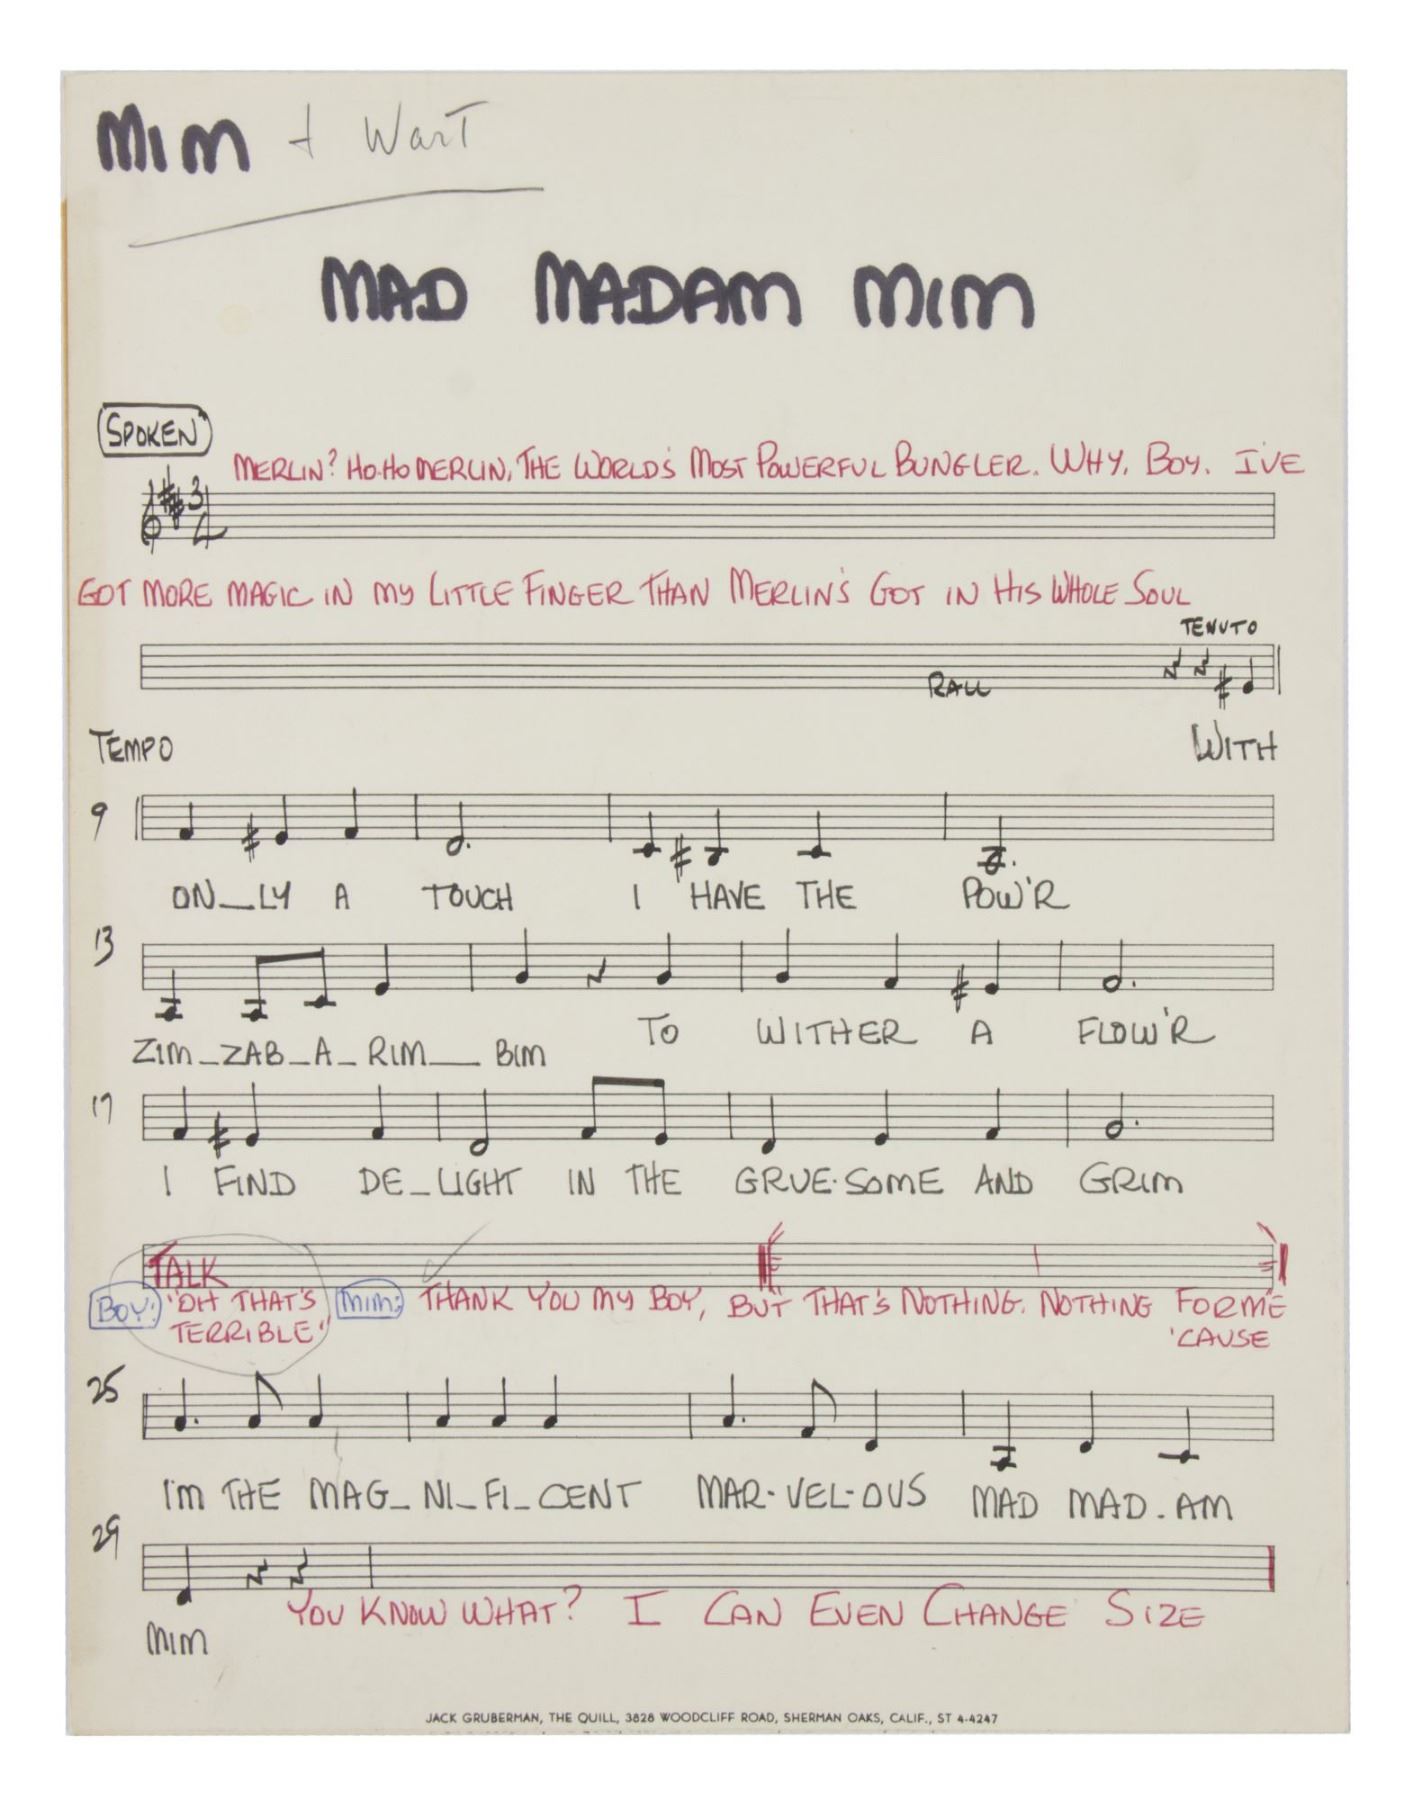 MIM + Wart
MAD MADAM MIM
SPOKEN
MERLIN? HO-HO MERLIN, THE WORLD'S MOST POWERFUL BUNGLER. WHY, BOY. I'VE
3/4
GOT MORE MAGIC IN MY LITTLE FINGER THAN MERLIN'S GOT IN HIS WHOLE SOUL
TENUTO
RALL
TEMPO WITH
9
ON__LY A TOUCH I HAVE THE POW'R
13
TO WITHER A FLOW'R
ZIM_ZAB_A_RIM__ BIM
17
I FIND DE_LIGHT IN THE GRUE-SOME AND GRIM
TALK
BOY: "OH THAT'S TERRIBLE" MIM: THANK YOU MY BOY, BUT THAT'S NOTHING. NOTHING FOR ME 'CAUSE
25
I'M THE MAG_NI_FI_CENT MAR-VEL-OUS MAD MAD-AM
29
YOU KNOW WHAT? I CAN EVEN CHANGE SIZE
MIM
JACK GRUBERMAN, THE QUILL, 3828 WOODCLIFF ROAD, SHERMAN OAKS, CALIF., ST 4-4247